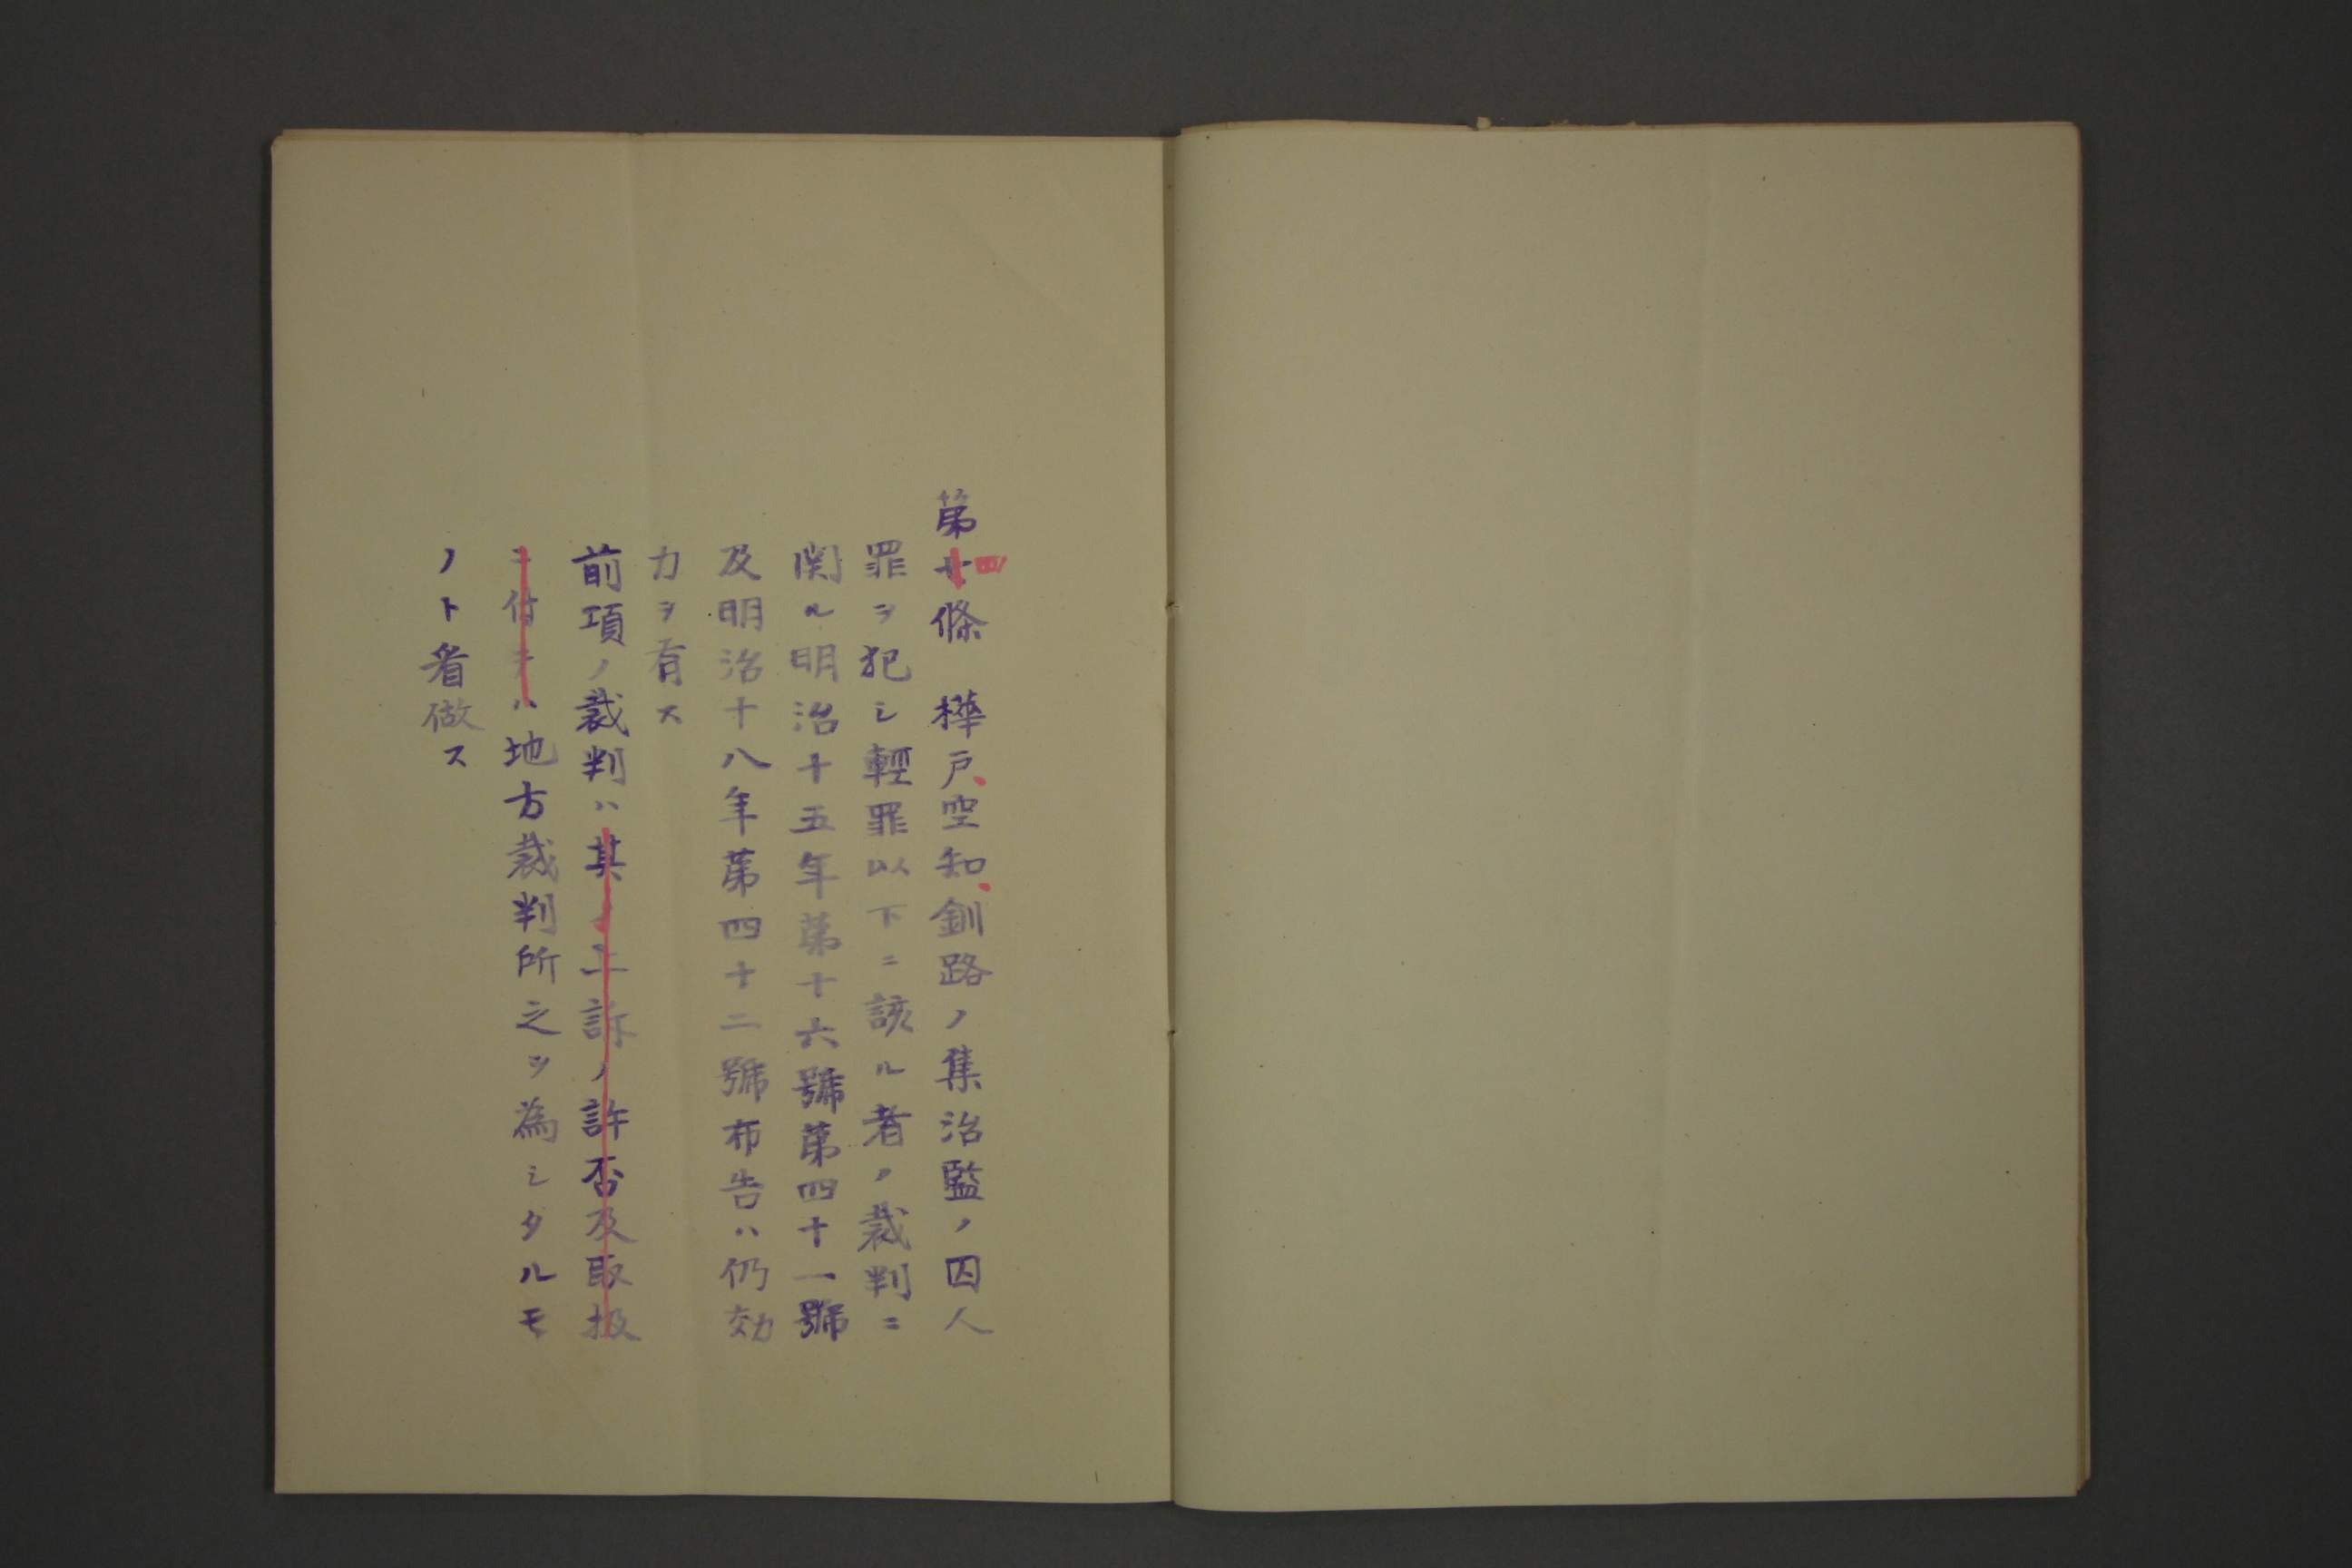 第十四條 樺戸、空知、釧路ノ集治監ノ囚人
罪ヲ犯シ輕罪以下ニ該ル者ノ裁判ニ
関ル明治十五年第十六號第四十一號
及明治十八年第四十二號布告ハ仍効
力ヲ有ス
前項ノ裁判ハ其ノ上訴ノ許否及取扱
ニ付テハ地方裁判所之ヲ為シタルモ
ノト看做ス